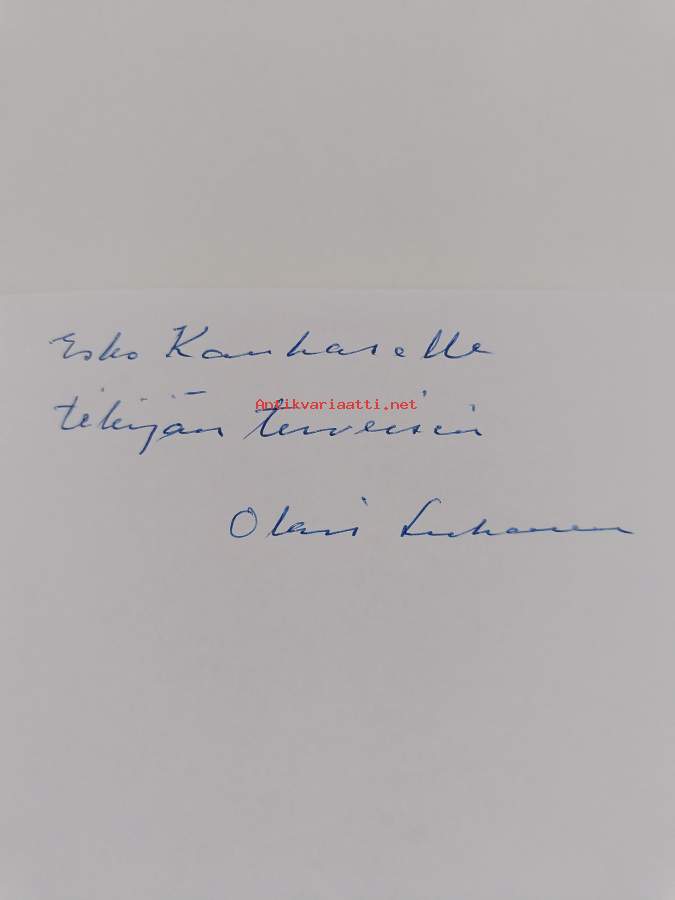 Esko Kauhaselle
Antikvariaatti.net
tekijän terveisin
Olavi